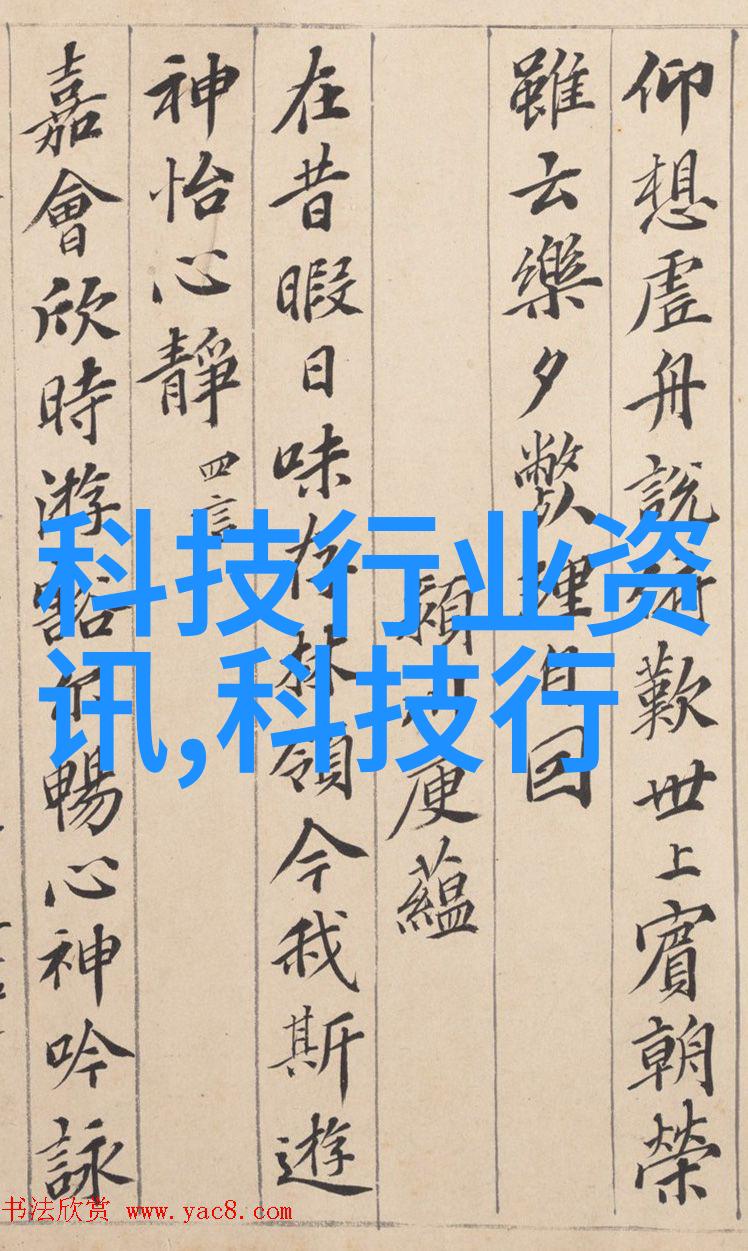 仰想虛舟說俯歎世上賓朝榮
雖云樂夕弊理自囙
潁川庾蘊
在昔暇日味存林領今我斯遊
神怡心靜 四言
嘉會欣時游豁尒暢心神吟詠
科技行业资
讯,科技行
书法欣赏 www.yac8.com